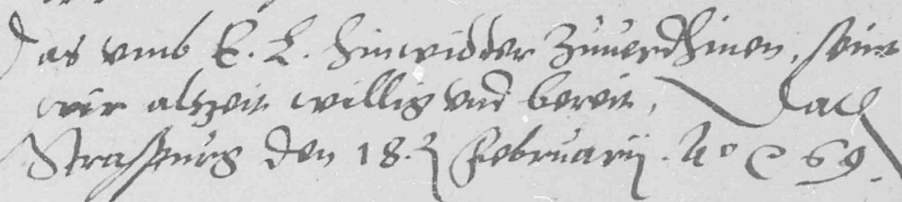 Das vmb E. L. hinwidder zuuerdhinen, seint
wir altzeit willig vnd bereit, Datt
Straspurg den 18. February. Ao 69.